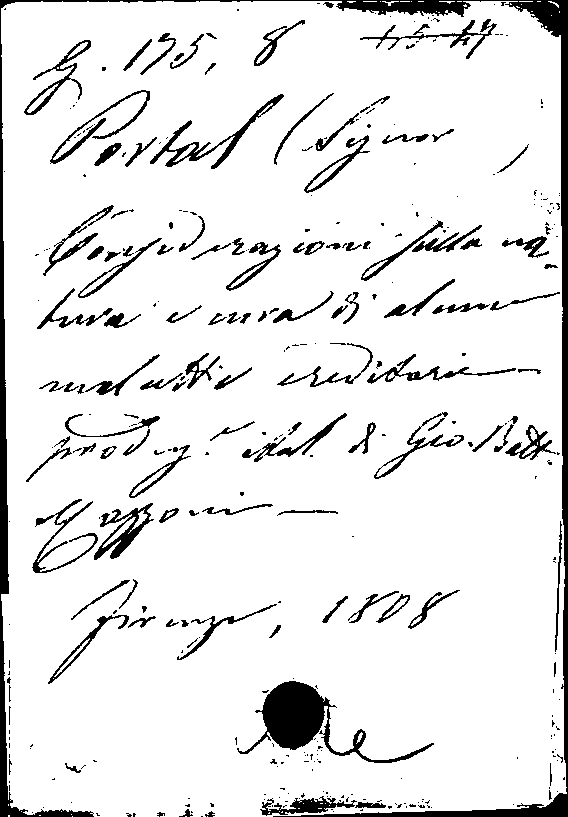 G. 175, 8 115 27
Portal (Signor )
Considerazioni sulla na-
tura e cura di alcune
malattie ereditarie
prod. ital. di Gio. Batt.
Mazzoni —
Firenze, 1808